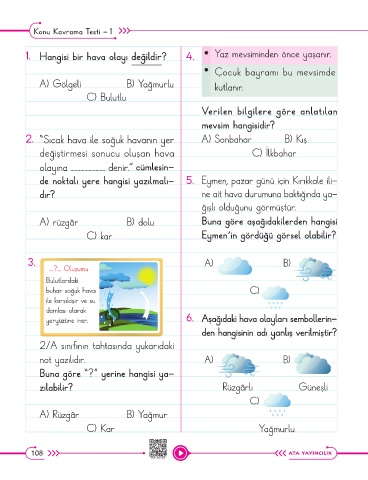 Konu Kavrama Testi – 1
1. Hangisi bir hava olayı değildir?
A) Gölgeli B) Yağmurlu
C) Bulutlu
2. “Sıcak hava ile soğuk havanın yer
değiştirmesi sonucu oluşan hava
olayına .............. denir.” cümlesin-
de noktalı yere hangisi yazılmalı-
dır?
A) rüzgâr B) dolu
C) kar
3.
...?... Oluşumu
Bulutlardaki
buhar soğuk hava
ile karşılaşır ve su
damlası olarak
yeryüzüne iner.
2/A sınıfının tahtasında yukarıdaki
not yazılıdır.
Buna göre “?” yerine hangisi ya-
zılabilir?
A) Rüzgâr B) Yağmur
C) Kar
4. • Yaz mevsiminden önce yaşanır.
• Çocuk bayramı bu mevsimde
kutlanır.
Verilen bilgilere göre anlatılan
mevsim hangisidir?
A) Sonbahar B) Kış
C) İlkbahar
5. Eymen, pazar günü için Kırıkkale ili-
ne ait hava durumuna baktığında ya-
ğışlı olduğunu görmüştür.
Buna göre aşağıdakilerden hangisi
Eymen’in gördüğü görsel olabilir?
A) B)
C)
6. Aşağıdaki hava olayları sembollerin-
den hangisinin adı yanlış verilmiştir?
A) B)
Rüzgârlı Güneşli
C)
Yağmurlu
108
ATA YAYINCILIK